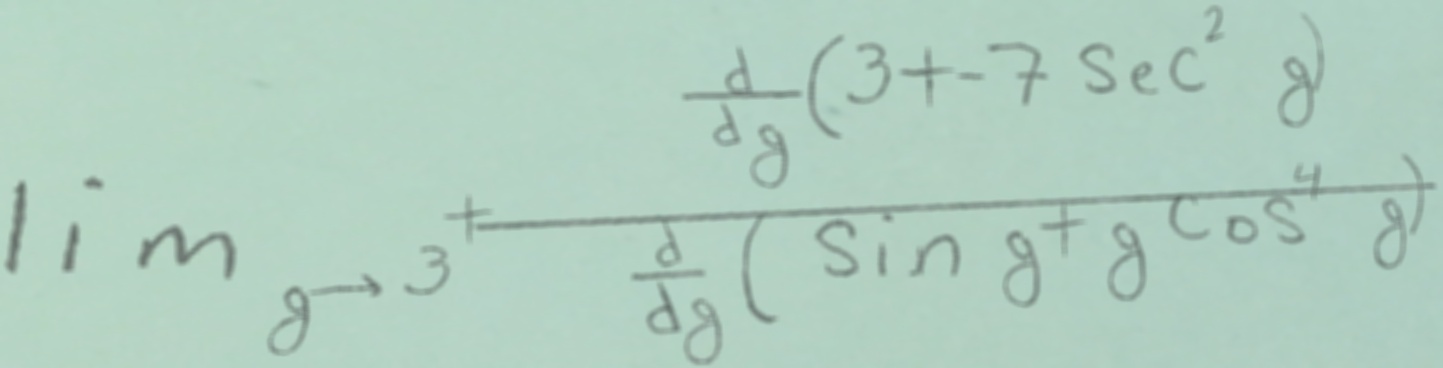 \lim_{g \to 3^+} \frac{\frac{d}{dg}(3+-7\sec^2 g)}{\frac{d}{dg}(\sin g + g\cos^4 g)}